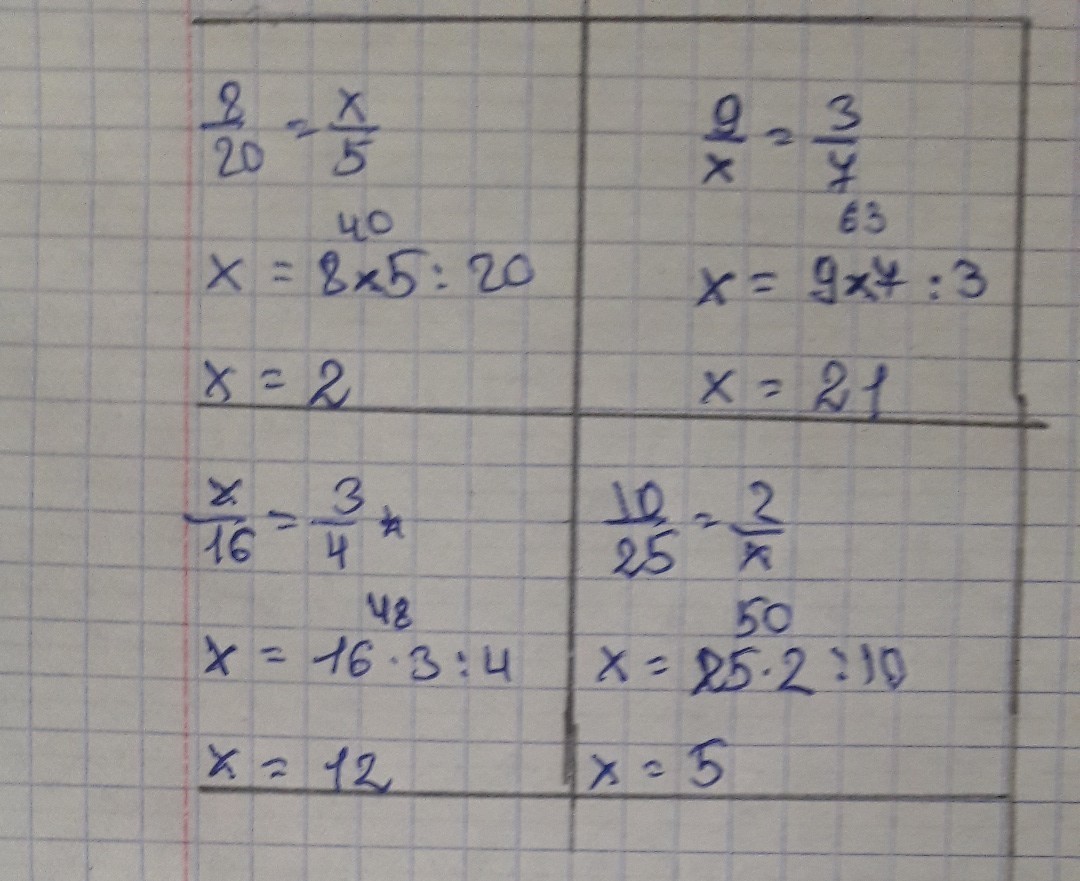 8/20 = x/5
40
x = 8x5 : 20
x = 2
9/x = 3/7
63
x = 9x7 : 3
x = 21
x/16 = 3/4
48
x = 16 · 3 : 4
x = 12
10/25 = 2/x
50
x = 25 · 2 : 10
x = 5